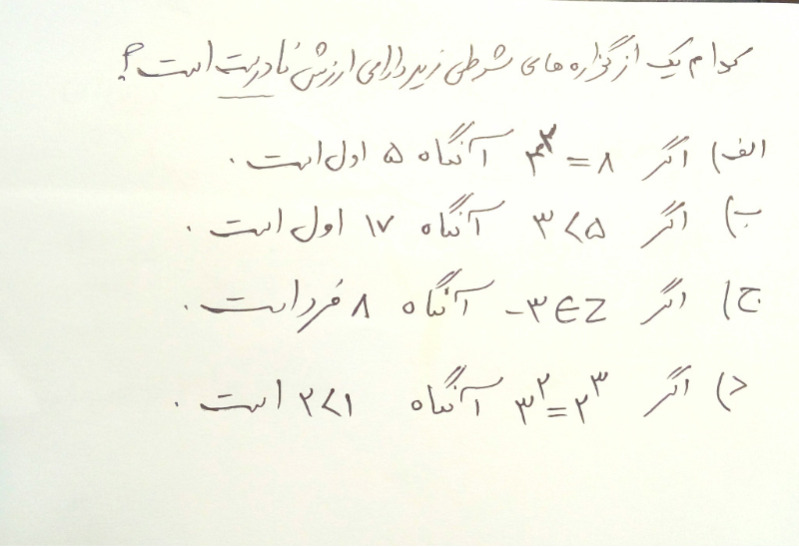 کدام یک از گزاره های شرطی زیر دارای ارزش نادرست است؟
الف) اگر ۸ = ۳^۲ آنگاه ۵ اول است.
ب) اگر ۳<۵ آنگاه ۱۷ اول است.
ج) اگر -۳∈Z آنگاه ۸ فرد است.
د) اگر ۳^۲=۲^۳ آنگاه ۲<۱ است.